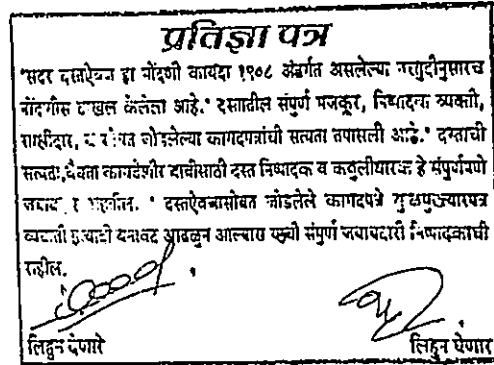 प्रतिज्ञा पत्र
"सदर दस्तऐवज हा नोंदणी कायदा १९०८ अंतर्गत असलेल्या तरतुदीनुसारच
नोंदणीस दाखल केलेला आहे. " दस्तातील संपूर्ण मजकूर, निष्पादक व्यक्ती,
साक्षीदार, व सोबत जोडलेल्या कागदपत्रांची सत्यता तपासली आहे. " दस्ताची
सत्यता, वैधता कायदेशीर बाबीसाठी दस्त निष्पादक व कबुलीधारक हे संपूर्णपणे
जबाबदार राहतील. " दस्तऐवजासोबत जोडलेले कागदपत्रे
व्यक्ती इत्यादी बनावट आढळून आल्यास याची संपूर्ण जबाबदारी निष्पादकाची
राहील.
लिहून देणारे
लिहून घेणार